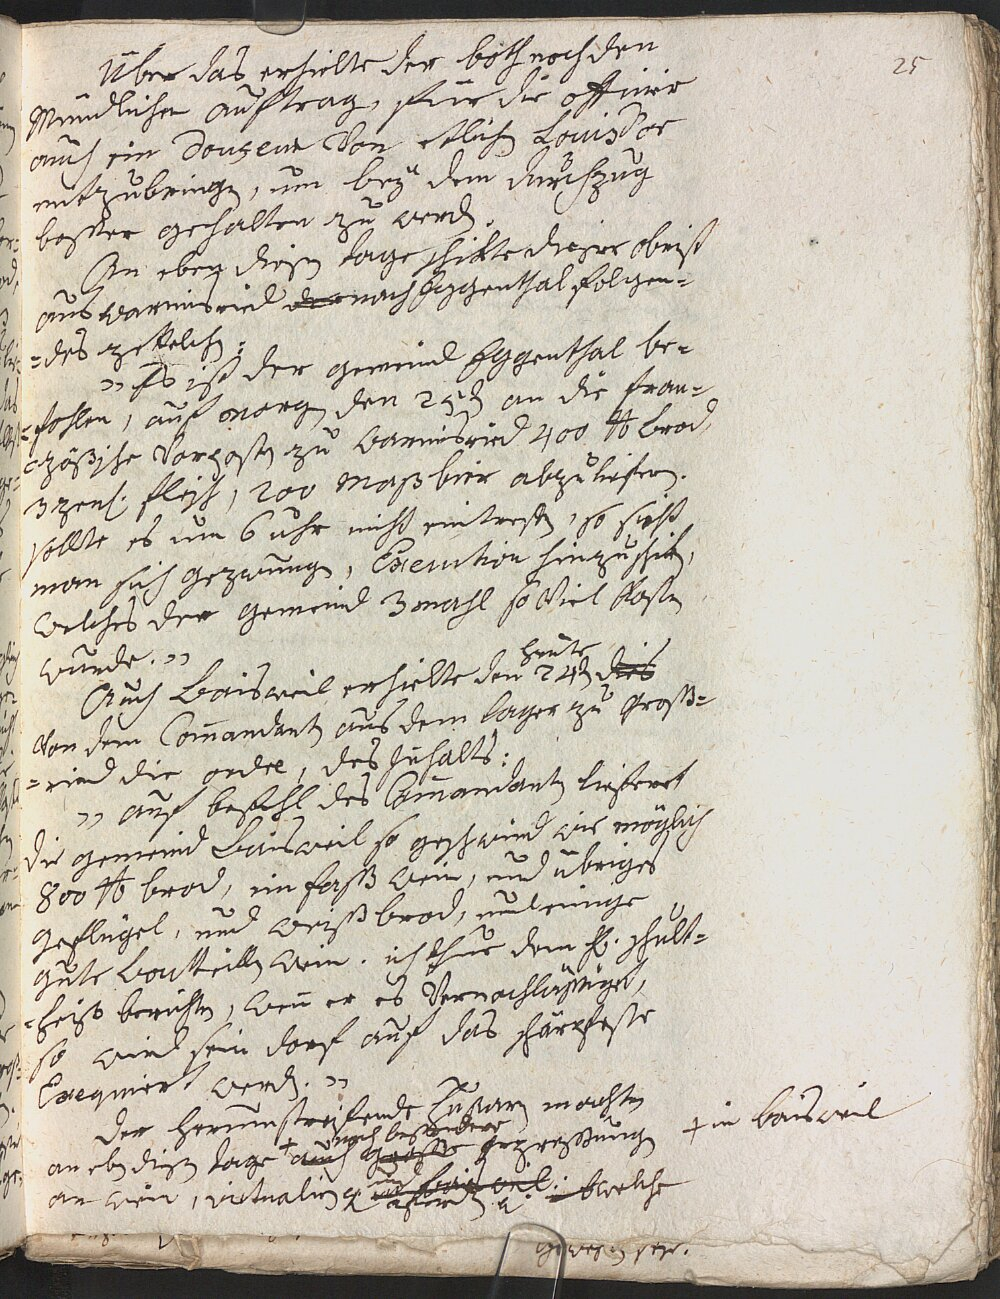 25
Über das erhielte der both noch den
Mündlichen auftrag, für die officier
auch ein Douzeur von etlich Louisdor
mitzubringen, um bey dem durchzug
besser gehalten zu werden.
An eben diesen tage schikte dieser obrist
aus warmisried nach Eggenthal folgen=
=des zettelchen:
„ Es ist der gemeind Eggenthal be=
=fohlen, auf morgen den 25ten an die fran=
=zößische Vorposten zu warmisried 400 ℔ brod,
3 zent. fleisch, 200 Maß bier abzuliefern.
sollte es um 6 uhr nicht eintreffen, so sieht
man sich gezwungen, Execution hinzuschiken,
welches der gemeind 3 mahl so viel kosten
wurde. „
heute
Auch Baisweil erhielte den 24ten dies
von dem Commandanten aus dem lager zu Groß=
=ried die order, des Inhalts:
„ auf befehl des Commandanten liefert
die gemeind Baisweil so geschwind wie möglich
800 ℔ brod, ein faß wein, und übriges
geflügel, und weißbrod, und einige
gute Bouteillen wein. ich thue dem H. schult=
=heiß berichten, wenn er es vernachläßiget,
so wird sein dorf auf das schärpfeste
Exequiert werden. „
Der herumstreifende Husaren machten
noch besondere
an eben diesen tage + auch große erpressungen
+ in baisweil
an wein, victualien und baisweil welche
gewesen seye.